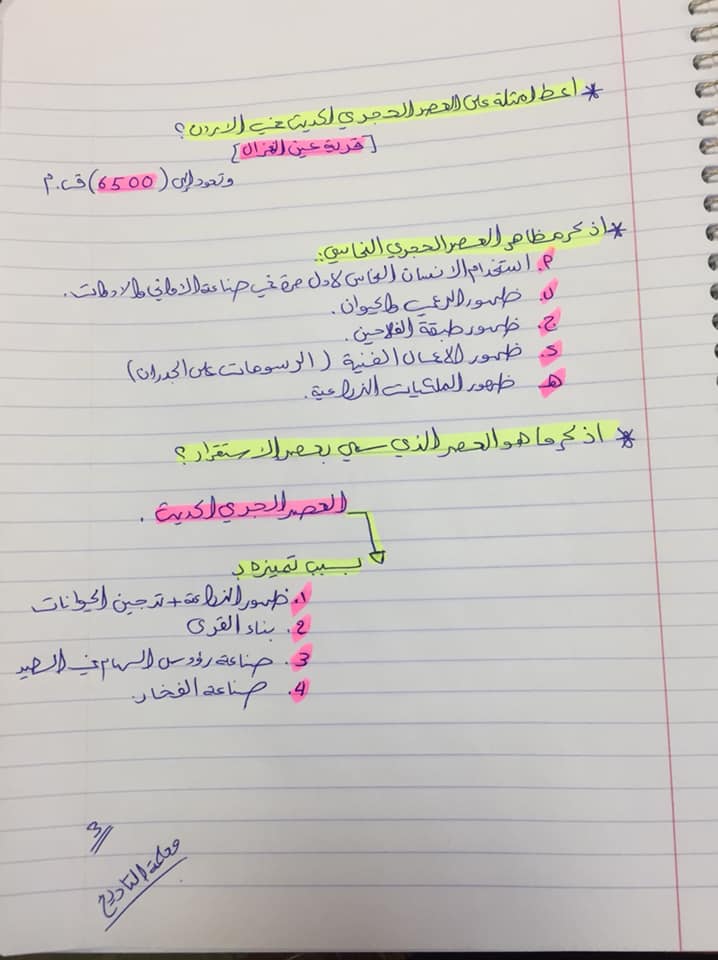 * اعط امثلة على العصر الحجري الحديث في الاردن؟
[قرية عين الغزال]
وتعود إلى (6500) ق.م
* اذكر مظاهر العصر الحجري النحاسي:
م. استخدام الانسان النحاس لاول مرة في صناعة الاواني والادوات.
ب. ظهور الرعي والحيوان.
ج. ظهور طبقة الفلاحين.
د. ظهور الاعمال الفنية (الرسومات على الجدران)
هـ. ظهور الملكيات الزراعية.
* اذكر ما هو العصر الذي سمي بعصر الاستقرار؟
العصر الحجري الحديث.
بسبب تميزه بـ
1. ظهور الزراعة + تدجين الحيوانات
2. بناء القرى
3. صناعة رؤوس السهام في الصيد
4. صناعة الفخار.
3
معلمة التاريخ